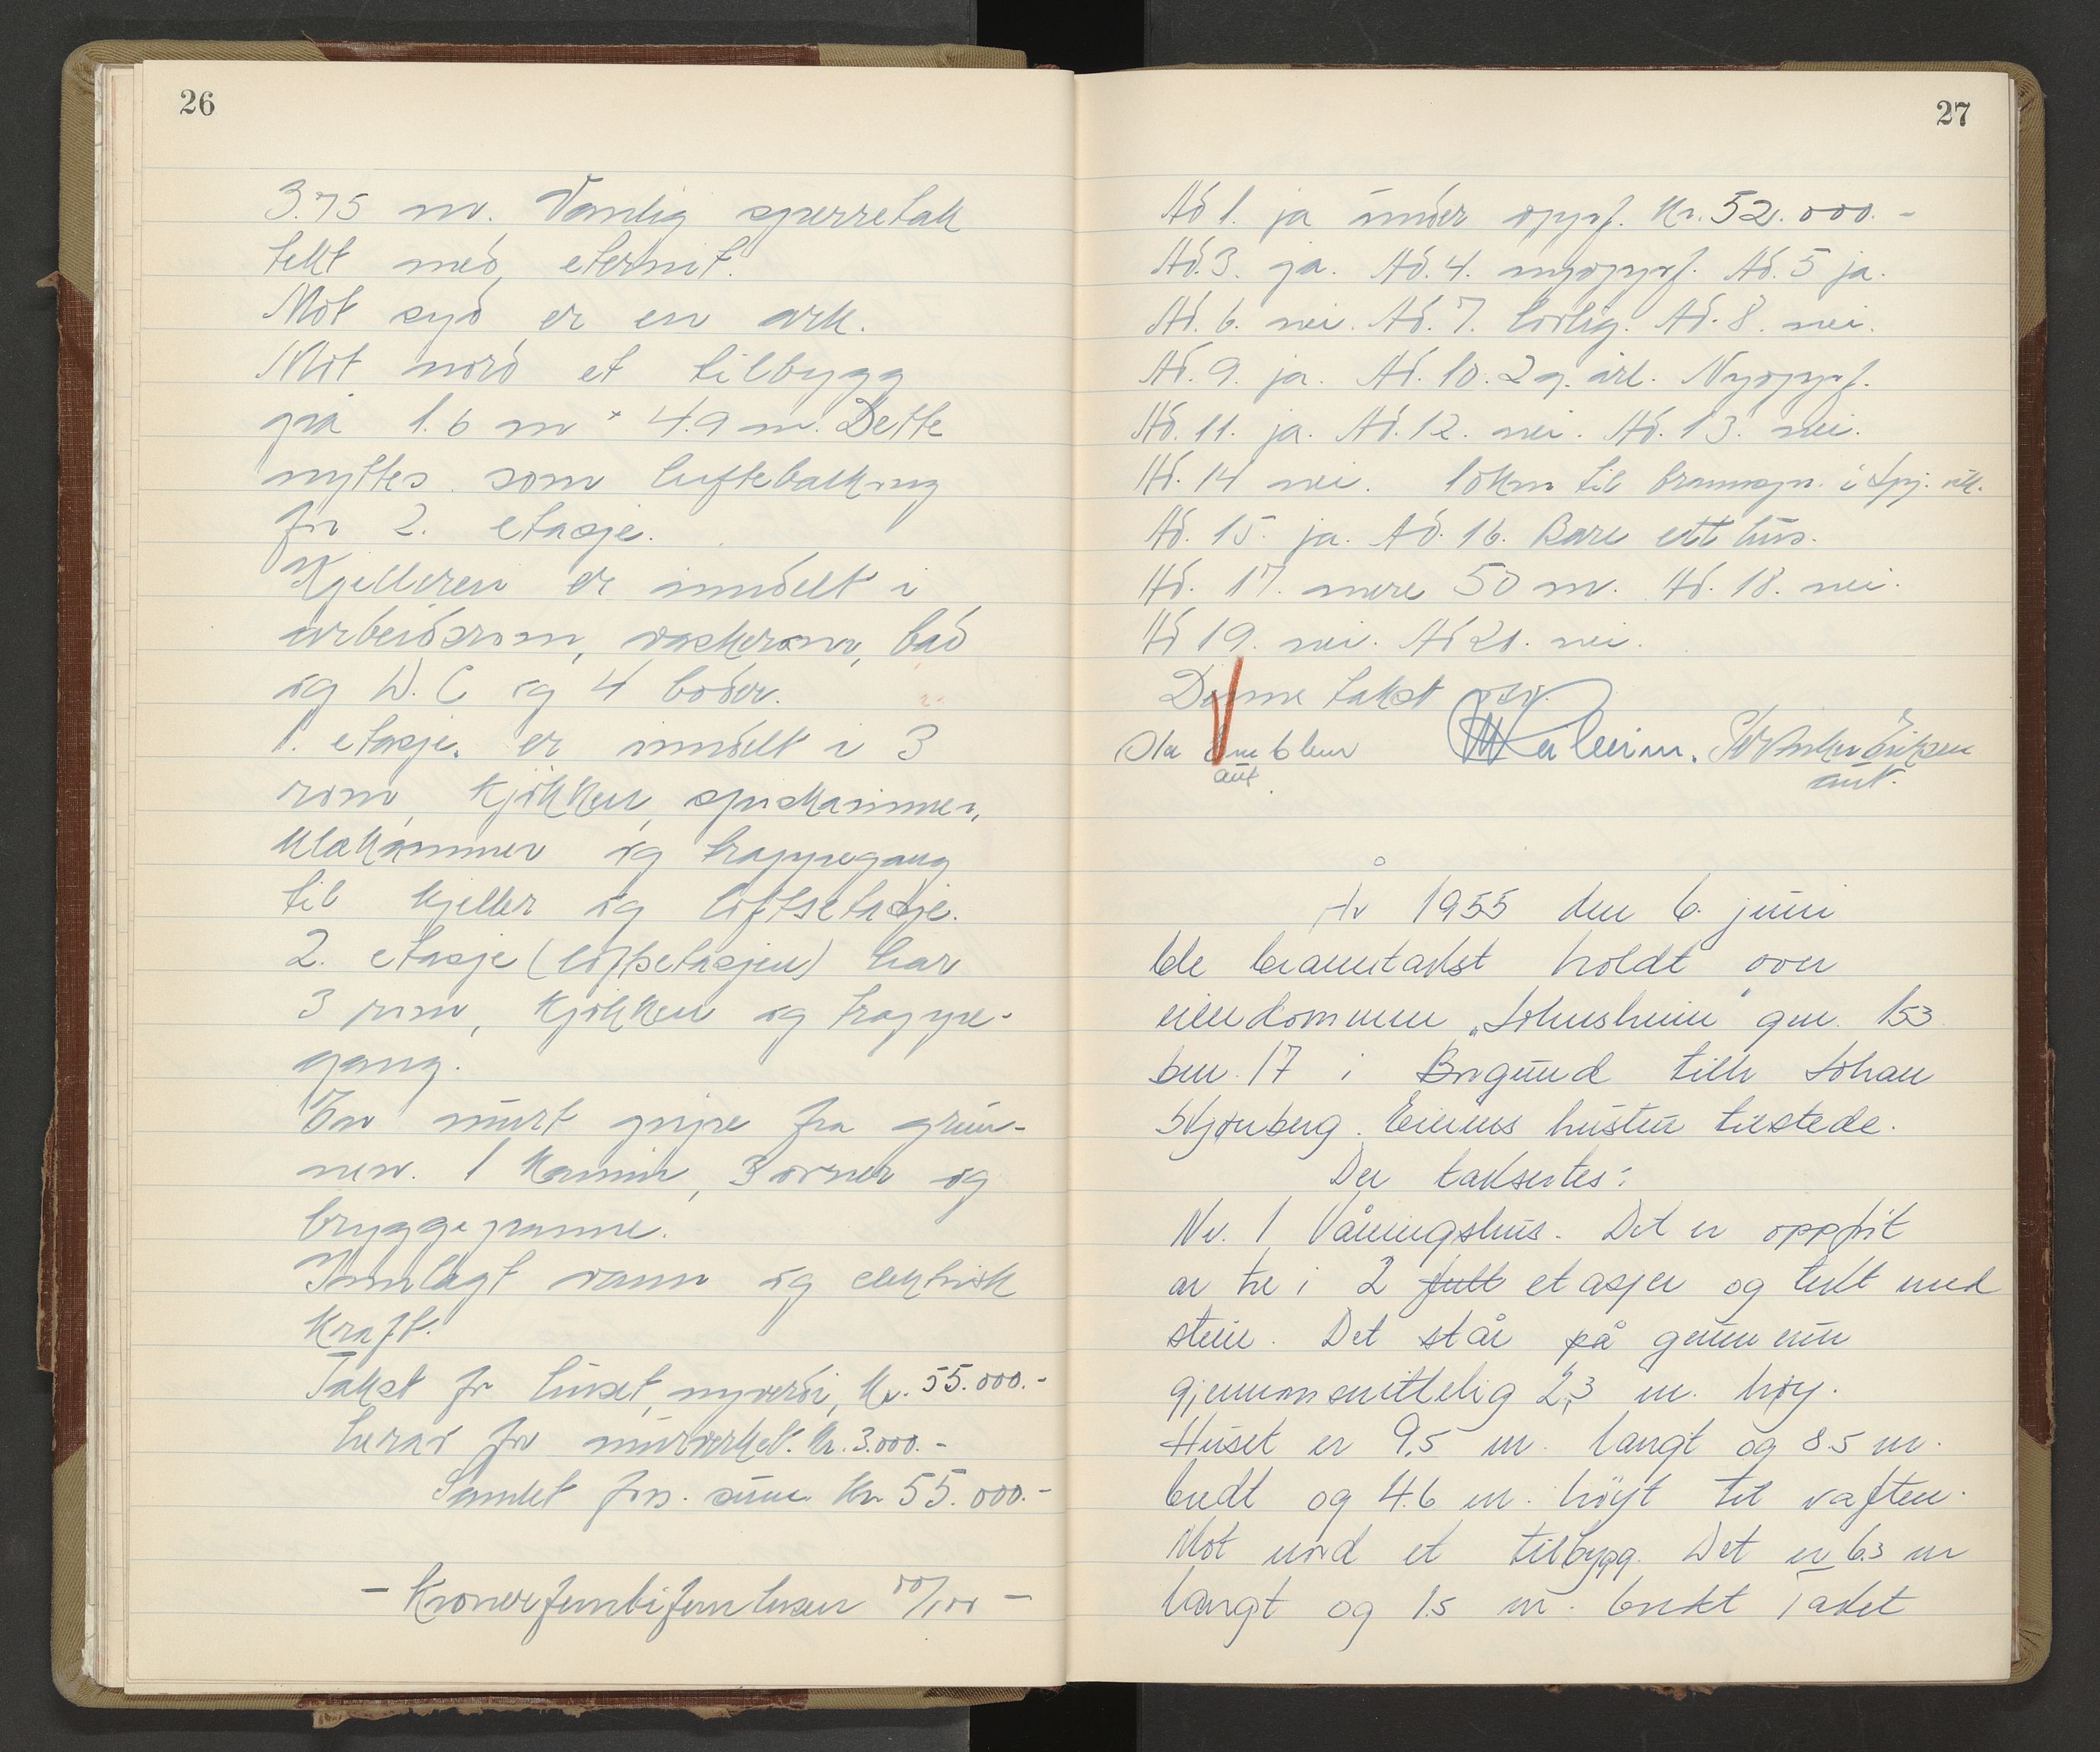 26
3.75 m. Vanlig sperretak
tekt med eternit.
Mot syd er en ark.
Mot nord et tilbygg
på 1.6 m × 4.9 m. Dette
nyttes som luftebalkong
for 2. etasje.
Kjelleren er inndelt i
arbeidsrom, vaskerom, bad
og W.C og 4 boder.
1. etasje er inndelt i 3
rom, kjøkken, spiskammer,
klekammer og trappegang
til kjeller og loftsetasje.
2. etasje (loftsetasjen) har
3 rom, kjøkken og trappe-
gang.
En murt pipe fra grun-
nen. 1 kamin, 3 ovner og
bryggepanne.
Innlagt vann og elektrisk
kraft.
Takst for huset, nyverdi, kr. 55.000.-
herav for murverket. kr. 3.000.-
Samlet fors. sum kr 55.000.-
- Kroner femtifem tusen 00/100 -
27
Ad 1. ja under oppf. kr. 52.000.-
Ad. 3. ja. Ad. 4. nyoppf. Ad. 5 ja.
Ad. 6. nei. Ad. 7. lovlig. Ad. 8. nei.
Ad. 9. ja. Ad. 10. 2 g. årl. Nyoppf.
Ad. 11. ja. Ad. 12. nei. Ad. 13. nei.
Ad. 14 nei. 10 km til brannspr. i
Ad. 15. ja. Ad. 16. Bare ett hus.
Ad. 17. mere 50 m. Ad. 18. nei.
Ad 19. nei. Ad 21. nei.
Denne takst osv.
Ola
aut.
aut.
År 1955 den 6. juni
ble branntakst holdt over
eiendommen „Johnsheim" gnr. 153
bnr. 17 i Borgund tilh Johan
Skjønberg. Eierens hustru tilstede.
Der taksertes:
Nr. 1 Våningshus. Det er oppført
av tre i 2 full etasjer og tekt med
stein. Det står på grunnmur
gjennomsnittelig 2,3 m. høy.
Huset er 9.5 m. langt og 8.5 m.
bredt og 4.6 m. høyt til raften.
Mot nord et tilbygg. Det er 6.3 m
langt og 1.5 m. bredt Taket